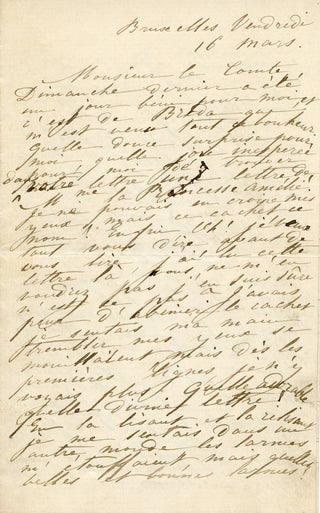 Bruxelles Vendredi
16 mars.
Monsieur le Comte
Dimanche dernier a été
un jour béni pour moi, et
c'est de Bréda que
m'est venu tout ce bonheur
quelle douce surprise pour
moi quelle joie inespérée
pour moi de trouver
votre lettre une lettre de
Mme la Princesse Amélie
je ne pouvais en croire mes
yeux mais ce cachet ce
nom! Enfin Oh! je veux
tout vous dire avant de
vous lire j'ai cette
lettre là, vous ne m'en
voudrez pas j'en suis sûre
n'est ce pas j'avais
peur d'abîmer le cachet
je sentais ma main
trembler mes yeux se
mouillaient mais dès les
premières lignes je n'y
voyais plus Quelle adorable
quelle divine lettre!
En la lisant et la relisant
je me sentais dans un
autre monde les larmes
m'étouffaient mais quelles
belles et bonnes larmes!